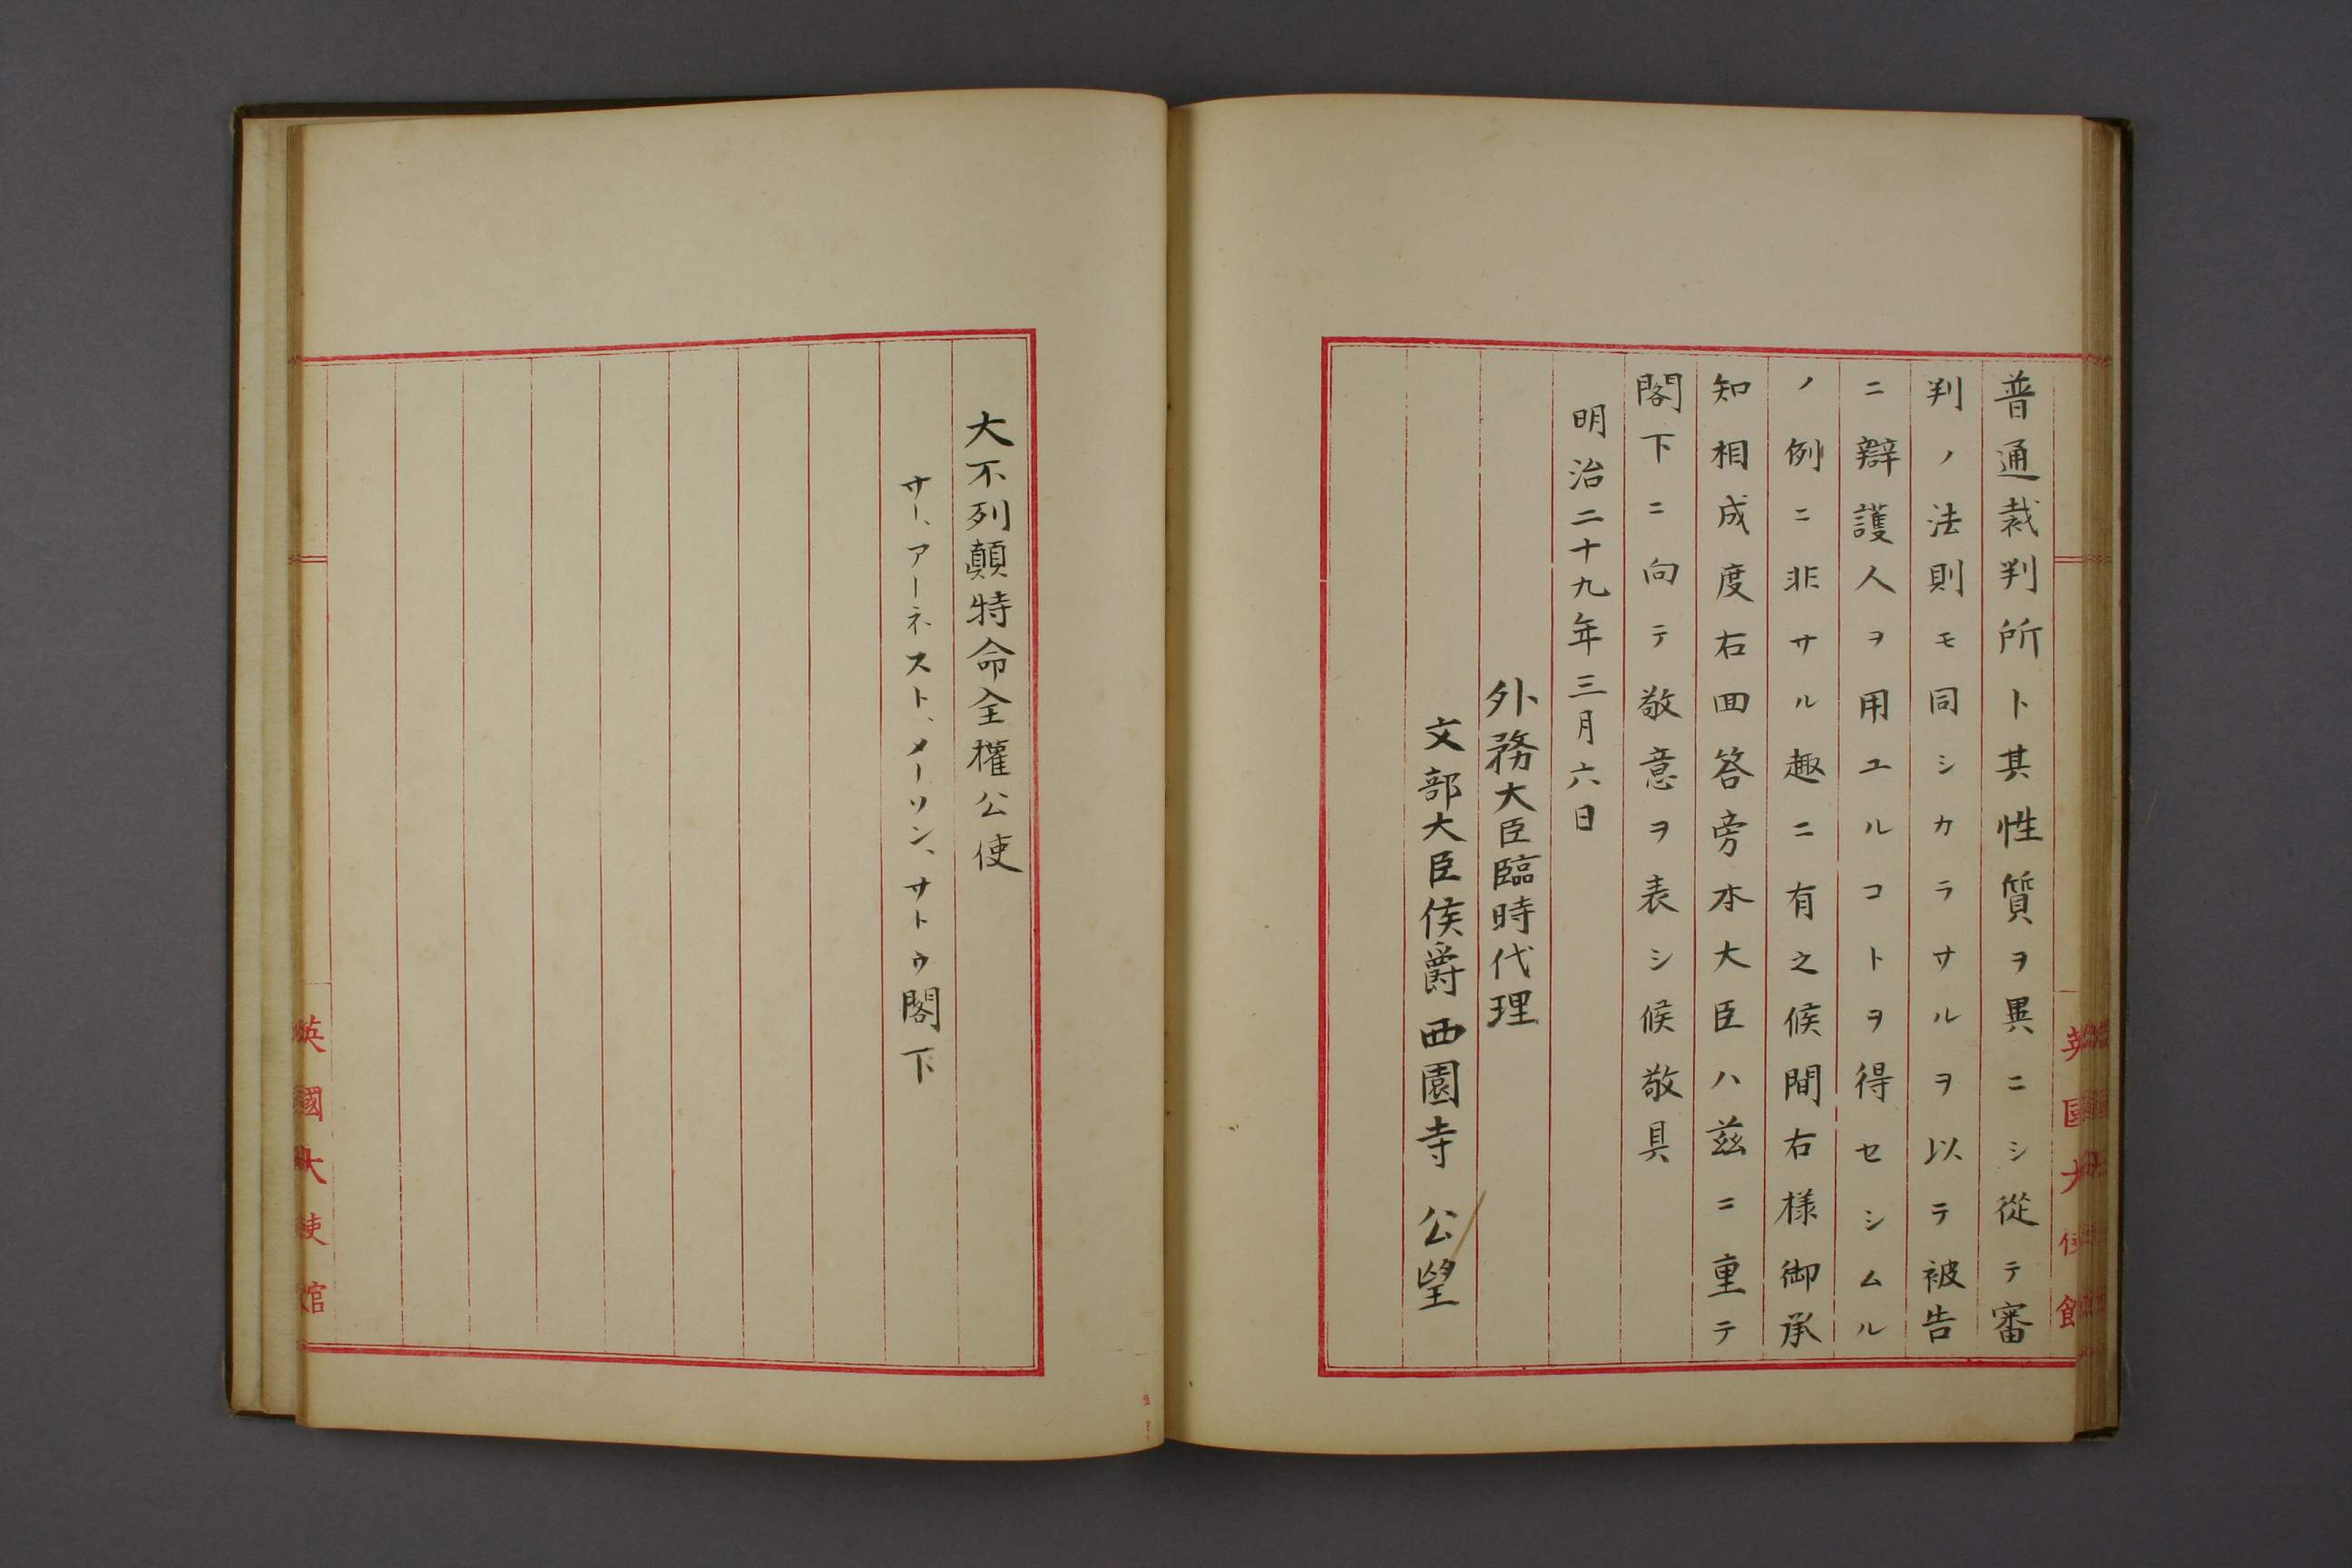 普通裁判所ト其性質ヲ異ニシ從テ審
判ノ法則モ同シカラサルヲ以テ被告
ニ辯護人ヲ用ユルコトヲ得セシムル
ノ例ニ非サル趣ニ有之候間右様御承
知相成度右回答旁本大臣ハ茲ニ重テ
閣下ニ向テ敬意ヲ表シ候敬具
明治二十九年三月六日
外務大臣臨時代理
文部大臣侯爵西園寺公望
大不列顛特命全權公使
サー、アーネスト、メーソン、サトウ閣下
英國大使館